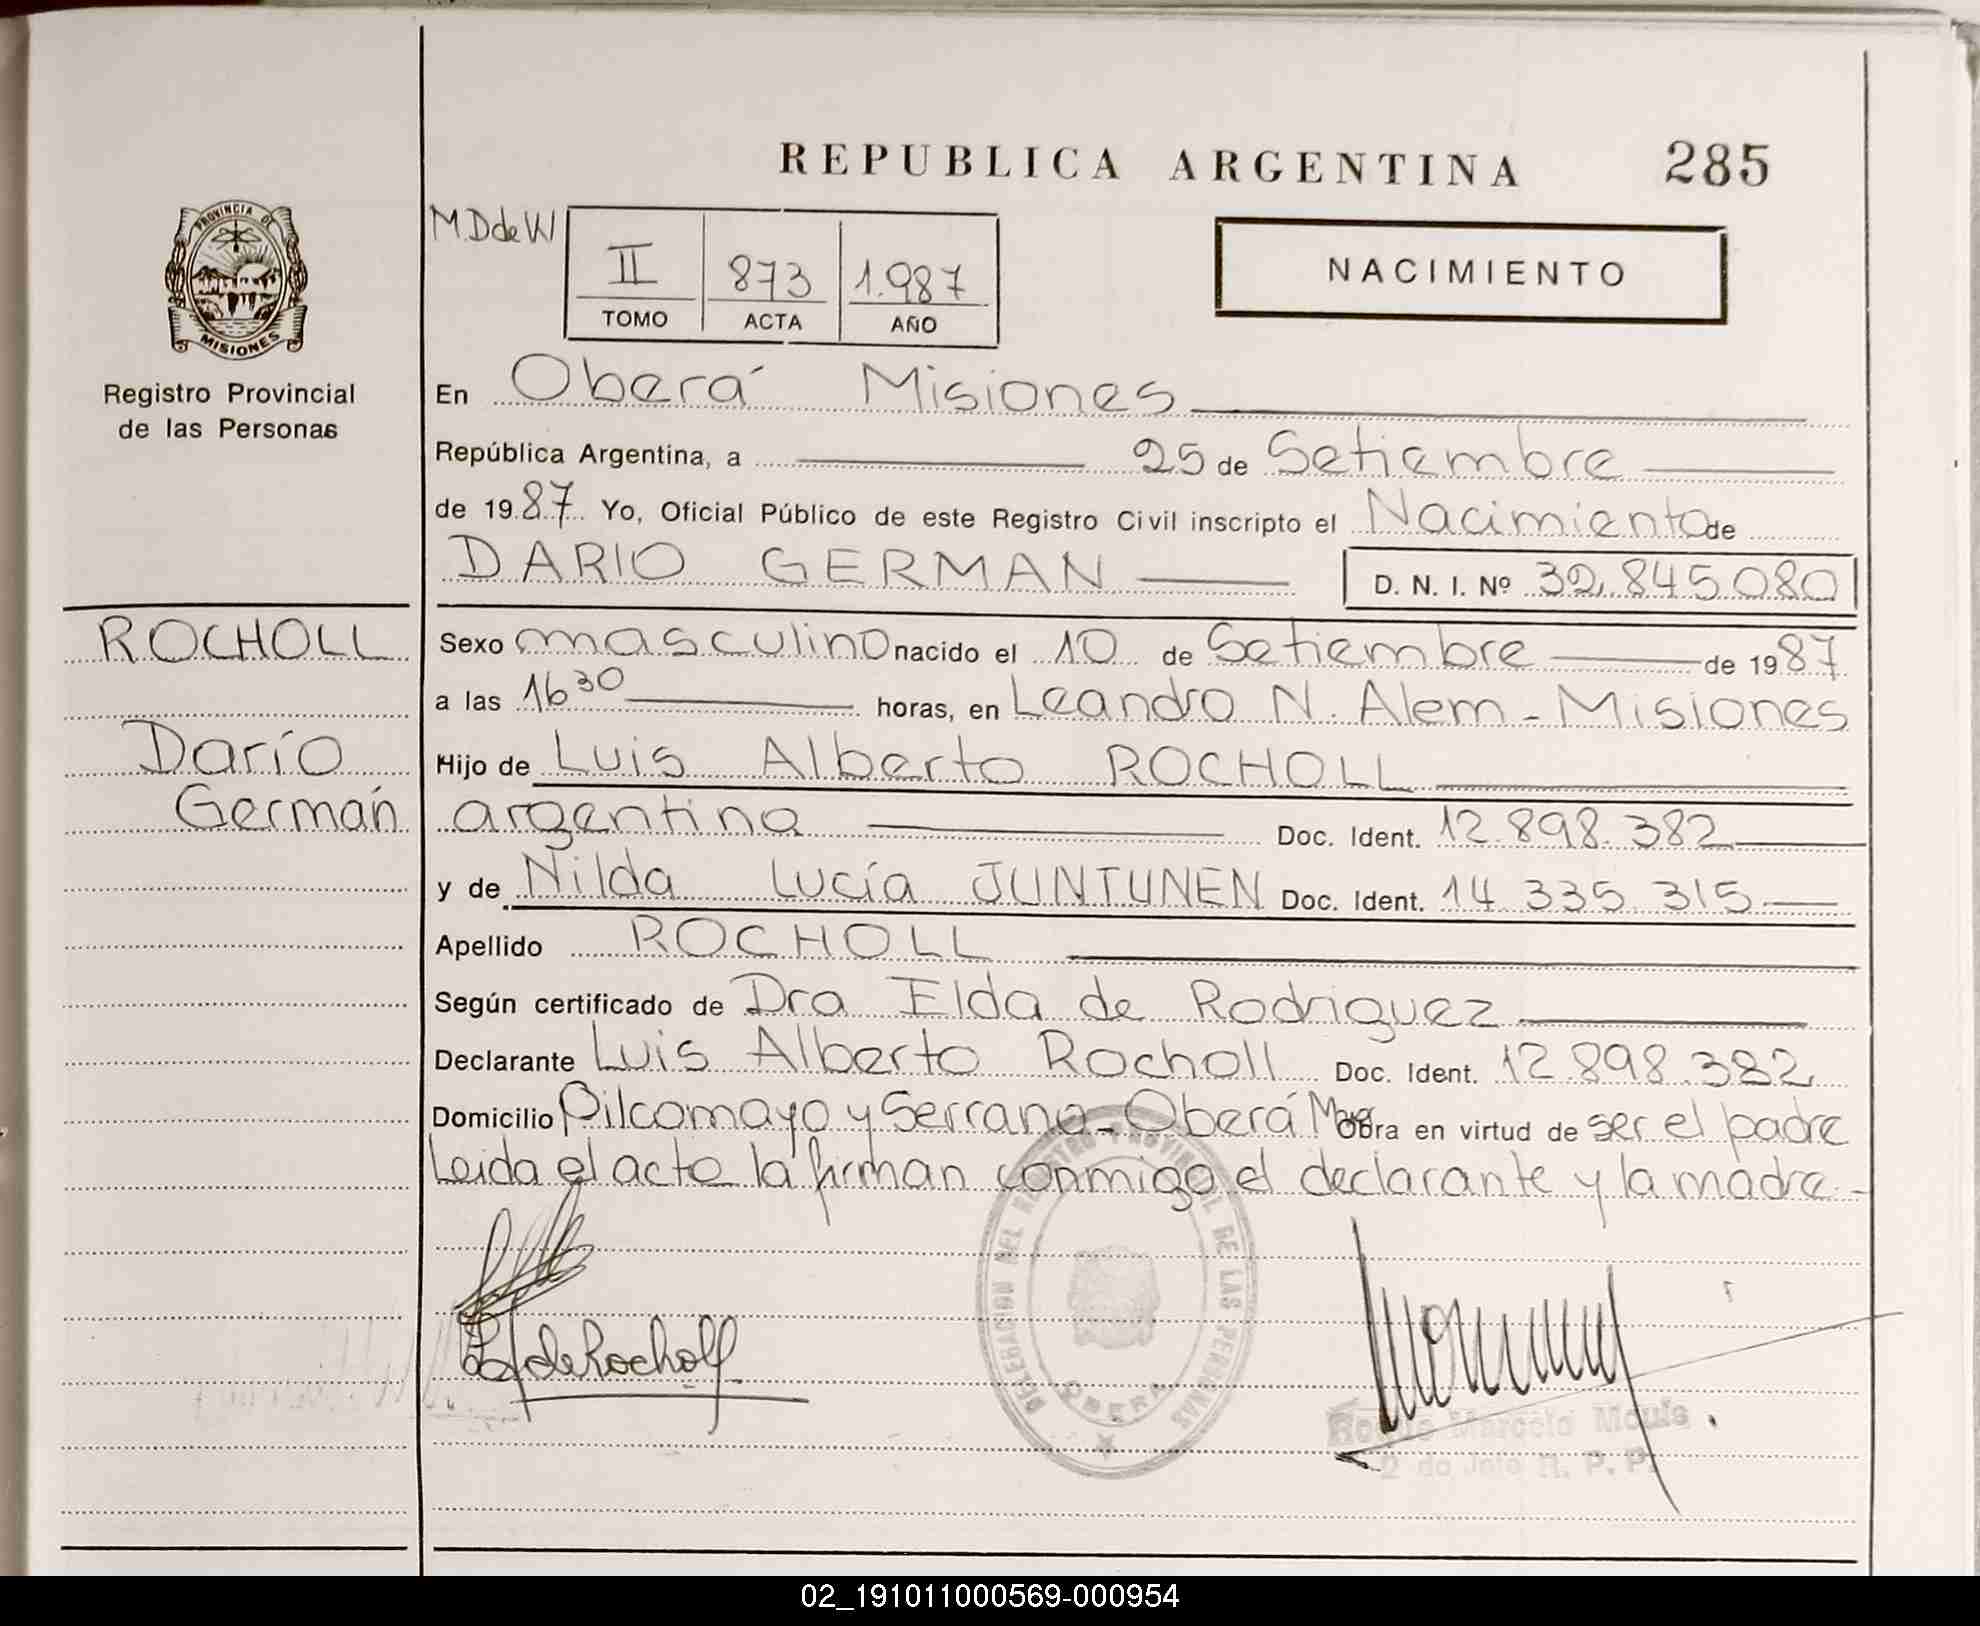 REPUBLICA ARGENTINA 285
PROVINCIA DE
MISIONES
Registro Provincial
de las Personas
M.D de W
II 873 1.987
TOMO ACTA AÑO
NACIMIENTO
En Oberá Misiones
República Argentina, a 25 de Setiembre
de 1987 Yo, Oficial Público de este Registro Civil inscripto el Nacimiento de
DARIO GERMAN D. N. I. Nº 32.845.080
ROCHOLL
Darío
Germán
Sexo masculino nacido el 10 de Setiembre de 1987
a las 16 30 horas, en Leandro N. Alem - Misiones
Hijo de Luis Alberto ROCHOLL
argentina Doc. Ident. 12.898.382
y de Nilda Lucía JUNTUNEN Doc. Ident. 14.335.315
Apellido ROCHOLL
Según certificado de Dra Elda de Rodriguez
Declarante Luis Alberto Rocholl Doc. Ident. 12.898.382
Domicilio Pilcomayo y Serrano - Oberá Mnes Obra en virtud de ser el padre
Leida el acta la firman conmigo el declarante y la madre -
DELEGACION DEL REGISTRO PROVINCIAL DE LAS PERSONAS
OBERA
de Rocholl
Marcelo
2 do Jefe R. P. P.
02_191011000569-000954